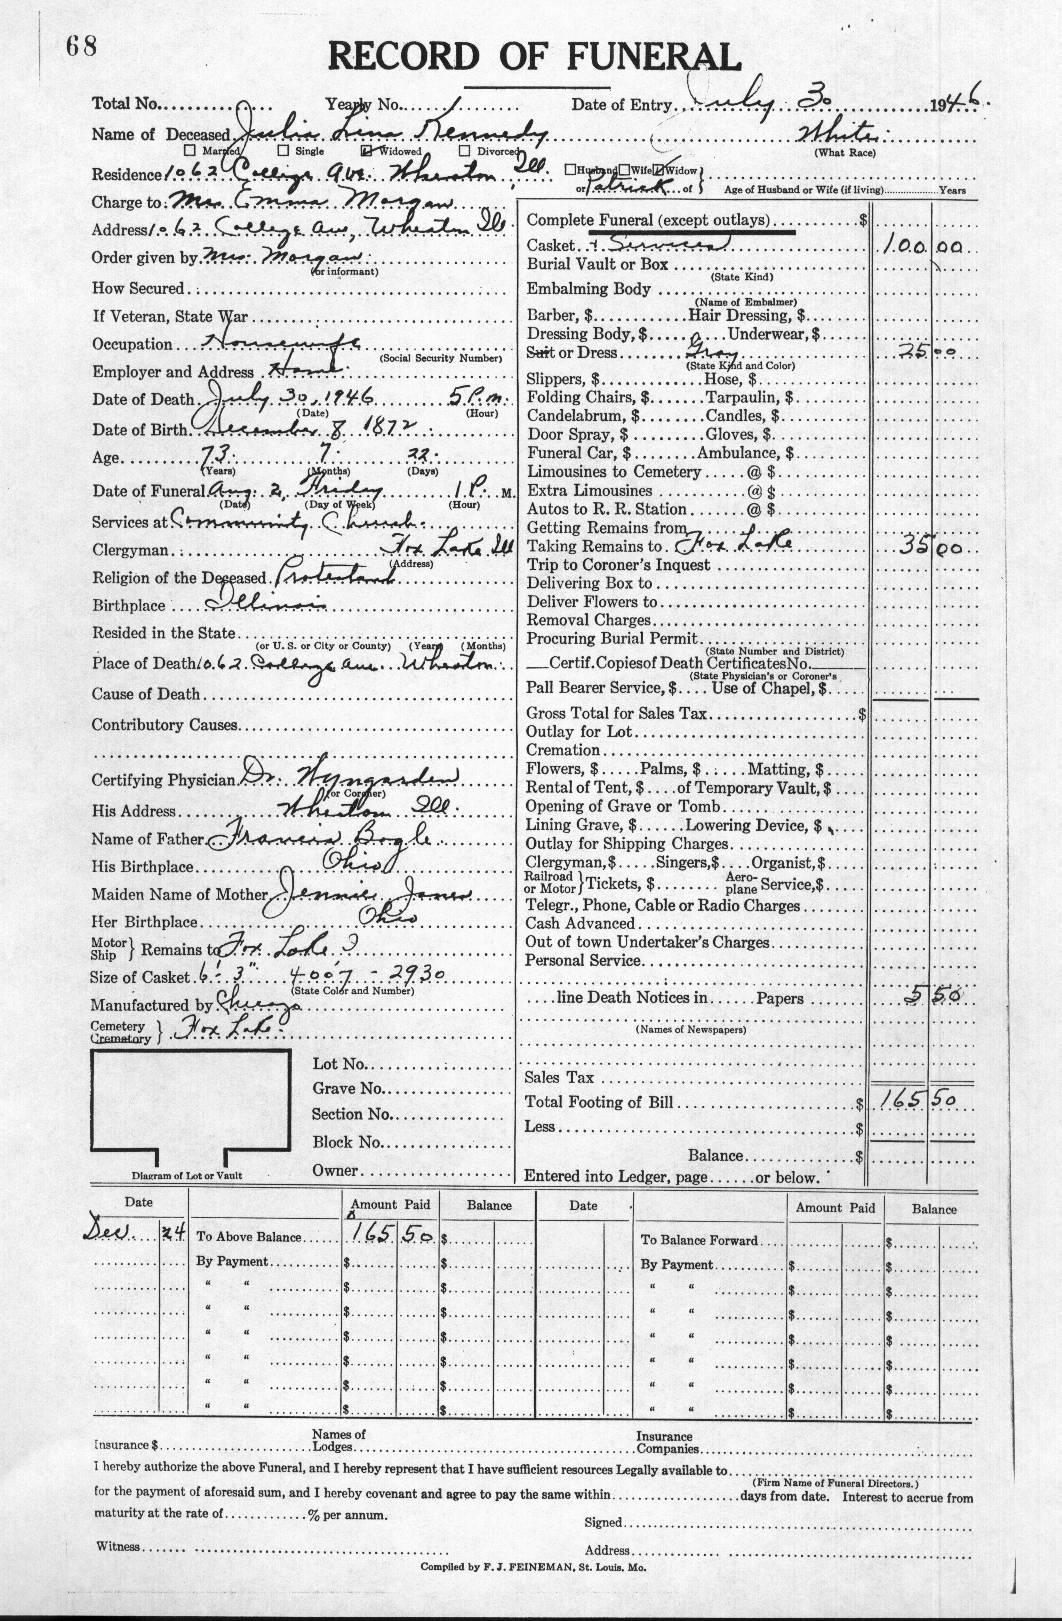 68
RECORD OF FUNERAL
Total No. Yearly No. 1 Date of Entry July 30 1946.
Name of Deceased Julia Lina Kennedy White
☐ Married ☐ Single ☑ Widowed ☐ Divorced (What Race)
Residence 1062 College Ave. Wheaton, Ill. ☐Husband ☐Wife ☑Widow or Patrick of } Age of Husband or Wife (if living) Years
Charge to: Mrs. Emma Morgan
Address 1062 College Ave, Wheaton Ill.
Order given by Mrs. Morgan
(or informant)
How Secured
If Veteran, State War
Occupation Housewife
(Social Security Number)
Employer and Address Home
Date of Death July 30, 1946 5 P.m.
(Date) (Hour)
Date of Birth December 8 1872
Age 73 7 22
(Years) (Months) (Days)
Date of Funeral Aug. 2, Friday 1 P. M.
(Date) (Day of Week) (Hour)
Services at Community Church
Clergyman Fox Lake Ill
(Address)
Religion of the Deceased Protestand
Birthplace Illinois
Resided in the State
(or U. S. or City or County) (Years) (Months)
Place of Death 1062 College Ave. Wheaton
Cause of Death
Contributory Causes
Certifying Physician Dr. Wyngarden
(or Coroner)
His Address Wheaton Ill.
Name of Father Francis Bogle
His Birthplace Ohio
Maiden Name of Mother Jennie Jones
Her Birthplace Ohio
Motor Ship } Remains to Fox Lake
Size of Casket 6' - 3" 4007 - 2930
(State Color and Number)
Manufactured by Chicago
Cemetery Crematory } Fox Lake
Lot No.
Grave No.
Section No.
Block No.
Owner
Diagram of Lot or Vault
Complete Funeral (except outlays) $
Casket + Services 100 00
Burial Vault or Box
(State Kind)
Embalming Body
(Name of Embalmer)
Barber, $ Hair Dressing, $
Dressing Body, $ Underwear, $
Suit or Dress Gray 25 00
(State Kind and Color)
Slippers, $ Hose, $
Folding Chairs, $ Tarpaulin, $
Candelabrum, $ Candles, $
Door Spray, $ Gloves, $
Funeral Car, $ Ambulance, $
Limousines to Cemetery @ $
Extra Limousines @ $
Autos to R. R. Station @ $
Getting Remains from
Taking Remains to Fox Lake 35 00
Trip to Coroner's Inquest
Delivering Box to
Deliver Flowers to
Removal Charges
Procuring Burial Permit
(State Number and District)
Certif. Copies of Death Certificates No.
(State Physician's or Coroner's
Pall Bearer Service, $ Use of Chapel, $
Gross Total for Sales Tax $
Outlay for Lot
Cremation
Flowers, $ Palms, $ Matting, $
Rental of Tent, $ of Temporary Vault, $
Opening of Grave or Tomb
Lining Grave, $ Lowering Device, $
Outlay for Shipping Charges
Clergyman, $ Singers, $ Organist, $
Railroad or Motor } Tickets, $ Aero-plane Service, $
Telegr., Phone, Cable or Radio Charges
Cash Advanced
Out of town Undertaker's Charges
Personal Service
line Death Notices in Papers 5 50
(Names of Newspapers)
Sales Tax
Total Footing of Bill $ 165 50
Less $
Balance $
Entered into Ledger, page or below.
Date Amount Paid Balance Date Amount Paid Balance
Dec. 24 To Above Balance 165 50 $ To Balance Forward $
By Payment $ $ By Payment $ $
" " $ $ " " $ $
" " $ $ " " $ $
" " $ $ " " $ $
" " $ $ " " $ $
" " $ $ " " $ $
" " $ $ " " $ $
Insurance $ Names of Lodges Insurance Companies
I hereby authorize the above Funeral, and I hereby represent that I have sufficient resources Legally available to
(Firm Name of Funeral Directors.)
for the payment of aforesaid sum, and I hereby covenant and agree to pay the same within days from date. Interest to accrue from
maturity at the rate of % per annum.
Signed
Witness Address
Compiled by F. J. FEINEMAN, St. Louis, Mo.